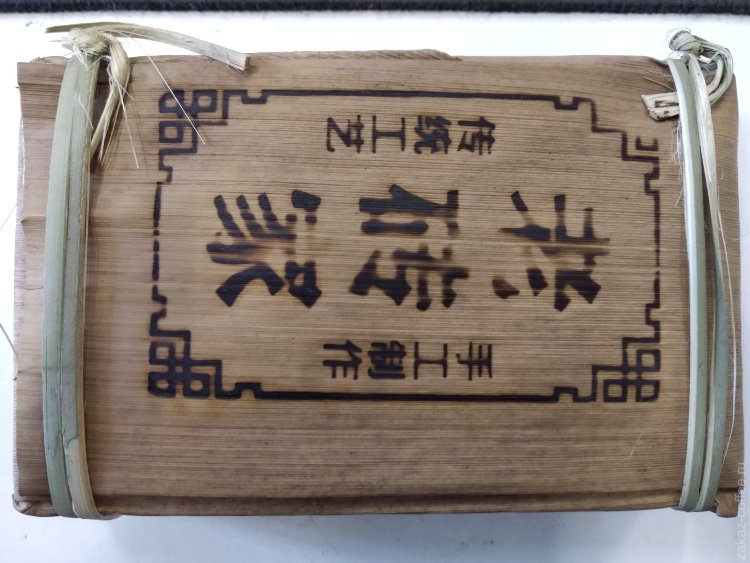 传统工艺
茯砖茶
手工制作
zakaz-coffee.ru